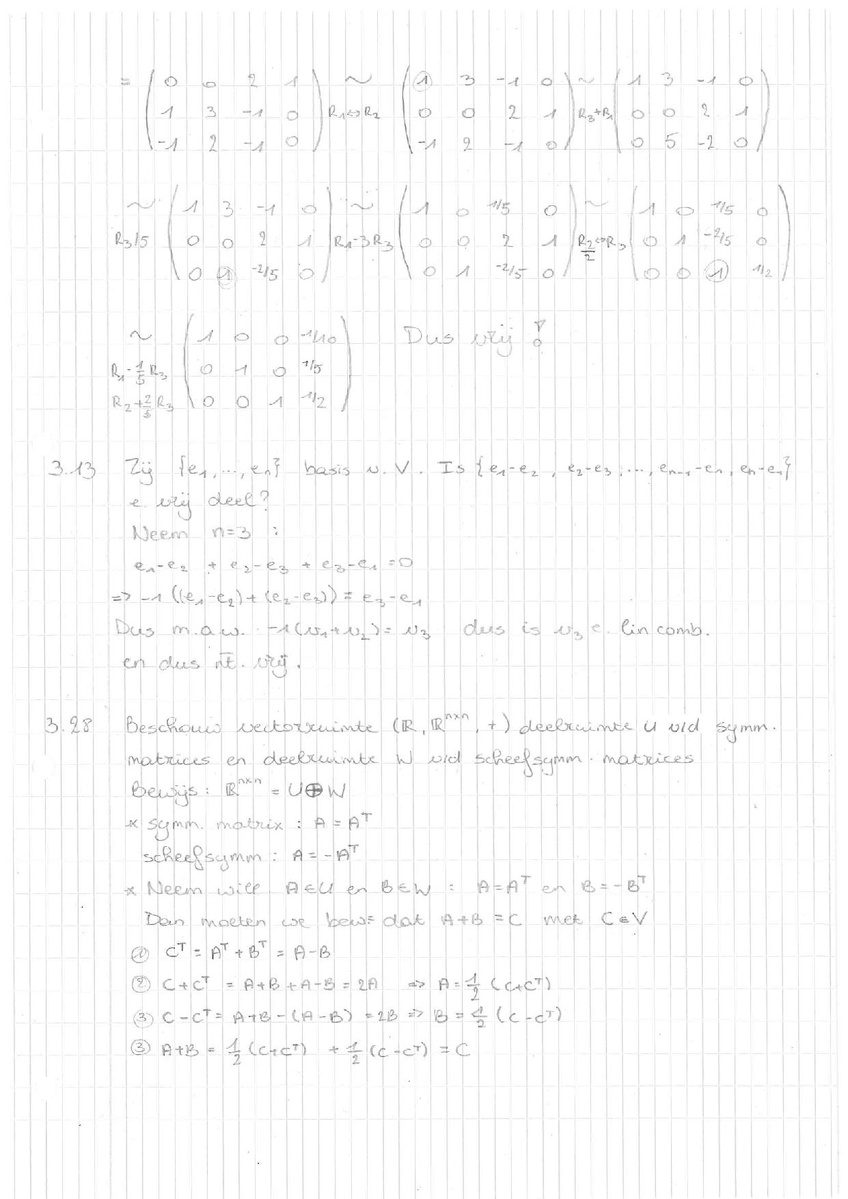 = ( 0 0 2 1 ) ~ ( 1 3 -1 0 ) ~ ( 1 3 -1 0 )
( 1 3 -1 0 ) R1⇔R2 ( 0 0 2 1 ) R3+R1 ( 0 0 2 1 )
( -1 2 -1 0 ) ( -1 2 -1 0 ) ( 0 5 -2 0 )
~ ( 1 3 -1 0 ) ~ ( 1 0 1/5 0 ) ~ ( 1 0 1/5 0 )
R3/5 ( 0 0 2 1 ) R1-3R3 ( 0 0 2 1 ) R2/2⇔R3 ( 0 1 -2/5 0 )
( 0 1 -2/5 0 ) ( 0 1 -2/5 0 ) ( 0 0 1 1/2 )
~ ( 1 0 0 -1/10 ) Dus vrij !
R1-1/5 R3 ( 0 1 0 1/5 )
R2+2/5 R3 ( 0 0 1 1/2 )
3.13 Zij {e1, ..., en} basis v. V. Is {e1-e2, e2-e3, ..., en-1-en, en-e1}
e. vrij deel?
Neem n=3 :
e1-e2 + e2-e3 + e3-e1 = 0
=> -1 ((e1-e2)+(e2-e3)) = e3-e1
Dus m.a.w. -1(v1+v2) = v3 dus is v3 e. lin comb.
en dus nt. vrij.
3.28 Beschouw vectorruimte (ℝ, ℝⁿˣⁿ, +) deelruimte U v/d symm.
matrices en deelruimte W v/d scheefsymm. matrices
Bewijs: ℝⁿˣⁿ = U⊕W
* symm. matrix : A = Aᵀ
scheefsymm : A = -Aᵀ
* Neem will. A∈U en B∈W : A=Aᵀ en B=-Bᵀ
Dan moeten we bew= dat A+B = C met C∈V
① Cᵀ = Aᵀ + Bᵀ = A-B
② C+Cᵀ = A+B+A-B = 2A => A = 1/2 (C+Cᵀ)
③ C-Cᵀ = A+B-(A-B) = 2B => B = 1/2 (C-Cᵀ)
③ A+B = 1/2 (C+Cᵀ) + 1/2 (C-Cᵀ) = C